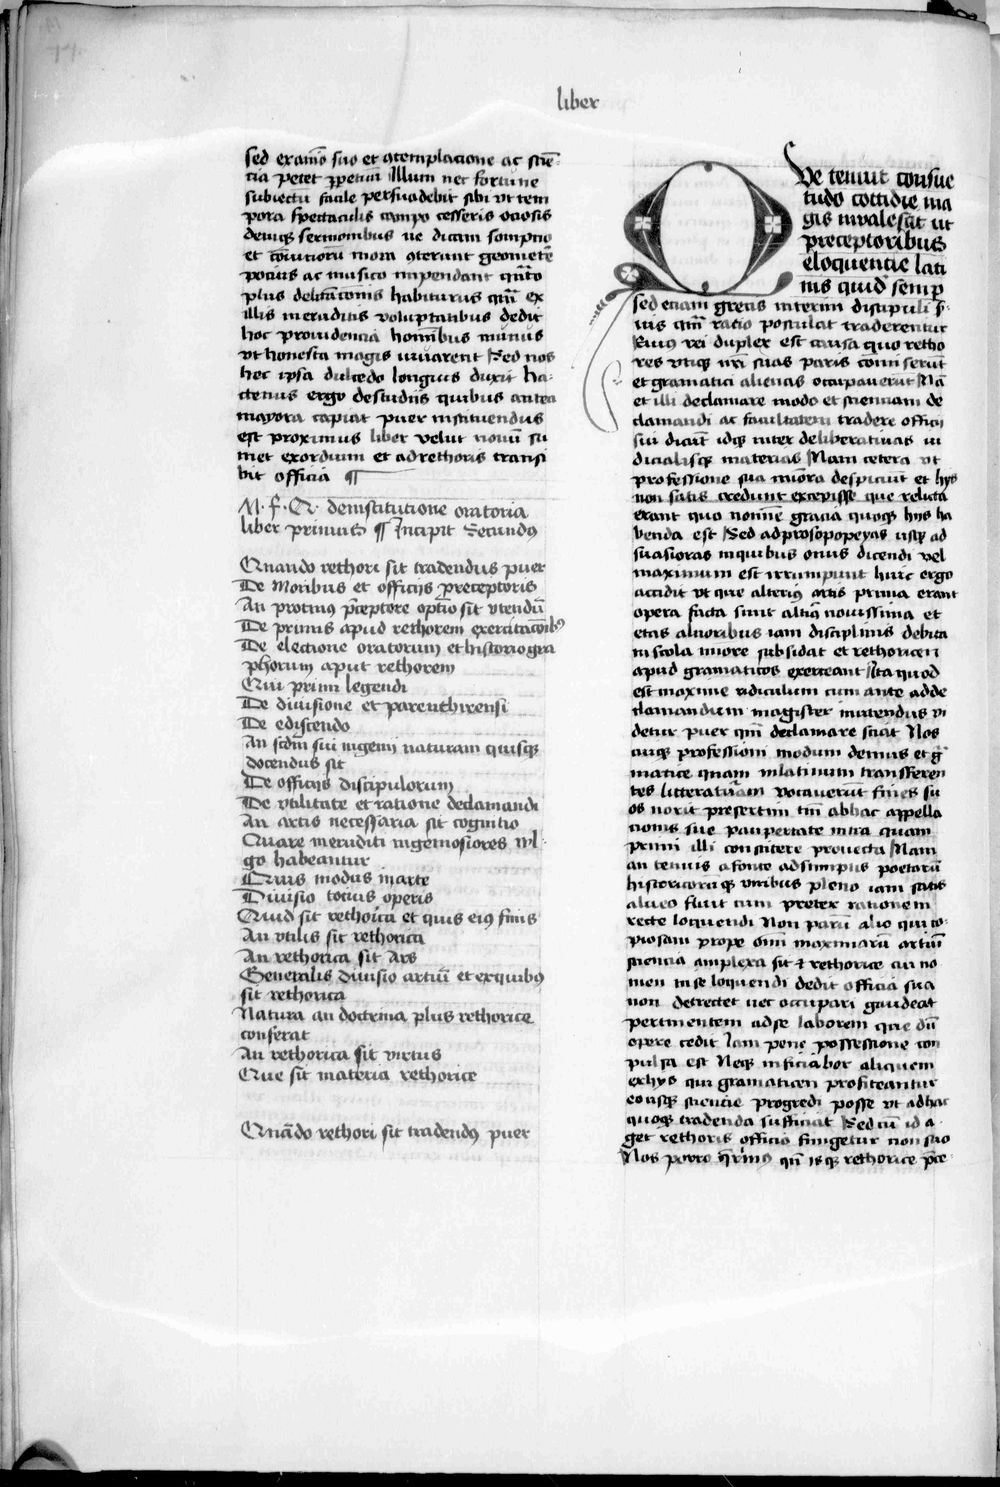 liber
sed examio suo et ɔtemplacione ac scien-
cia petet ꝑpetuū Illum nec fortune
subiectū facile persuadebit sibi vt tem
pora spectaculis campo tesseris ociosis
deniqꝫ sermonibus ne dicam sompno
et cōuiuioru mora ɔterunt geometre
pocius ac musico inpendant quāto
plus delectacionis habiturus quā ex
illis ineruditis voluptatibus dedit
hoc prouidencia hominibus munus
vt honesta magis iuuarent Sed nos
hec ipsa dulcedo longius duxit ha-
ctenus ergo de studiis quibus antea
mayora capiat puer instituendus
est proximus liber velut nouū su
met exordium et ad rethoris transi
bit officia ¶
M · f · Q · de institutione oratoria
liber primus ¶ Incipit Secundus
Quando rethori sit tradendus puer
De Moribus et officijs preceptoris
An protinus p̄ceptore optīo sit vtendū
De primis apud rethorem exercitacōibꝫ
De electione oratorum et historiogra
phorum aput rethorem
Qui primi legendi
De diuisione et parenthirensi
De ediscendo
An scdm sui ingenij naturam quisqꝫ
docendus sit
De officijs discipulorum
De vtilitate et ratione declamandi
An artis necessaria sit cognitio
Quare ineruditi ingeniosiores wl
go habeantur
Quis modus in arte
Diuisio tocius operis
Quid sit rethorica et quis eius finis
An vtilis sit rethorica
An rethorica sit Ars
Generalis diuisio artiū et ex quibus
sit rethorica
Natura an doctrina plus rethorice
conferat
An rethorica sit virtus
Que sit materia rethorice
Quādo rethori sit tradendus puer
Ve tenuit consue
tudo cottidie ma
gis inualescit ut
preceptoribus
eloquencie lati
nis quid semp
sed eciam grecis interim discipuli s-
ius qm̄ ratio postulat traderentur
Euius rei duplex est causa quo retho
res vtiqꝫ nr̄i suas partis comiserūt
et gramatici alienas occupauerūt Nā
et illi declamare modo et scienciam de
clamandi ac facultatem tradere officij
sui dicūt idqꝫ inter deliberatiuas iu
dicialisqꝫ materias Nam cetera vt
professione sua minora despiciunt et hys
non satis credunt excepisse que relicta
erant quo nomine gracia quoqꝫ hijs ha
benda est Sed ad prosopopeyas usqꝫ ad
suasioras in quibus onus dicendi vel
maximum est irrumpunt hinc ergo
accidit vt que alterius artis prima erant
opera facta sint altius nouissima et
etas alcioribus iam disciplinis debita
in scola minore subsidat et rethoricen
apud gramaticos exerceant Ita quod
est maxime ridiculum cum ante adde
clamandum magister mittendus vi
detur puer qm̄ declamare sciat Nos
cuiqꝫ professioni modum demus et gͣ
matice quam in latinum transferen
tes litteraturam vocauerūt fines su
os norit presertim tm̄ ab hac appella
cionis sue paupertate intra quam
primi illi constitere prouecta Nam
an tenuis a fonte adsumptis poetarū
historicorūqꝫ viribus pleno iam satis
alueo fluit cum preter rationem
recte loquendi Non parū alio qui co-
piosam prope om̄i maximarū artiū
sciencia amplexa sit ⁊ rethorice cui no
men in se loquendi dedit officia sua
non detrectet nec occupari gaudeat
pertinentem ad se laborem que dū
opere cedit Iam pene possessione con
pulsa est Neqꝫ inficiabor aliquem
ex hys qui gramaticen profiteantur
eo usqꝫ sciencie progredi posse vt ad hac
quoqꝫ tradenda sufficiat Sed cū id a-
get rethoris officio fungetur non suo
Nos porro q̄rimus qn̄ is qꝫ rethorice p̄ce-